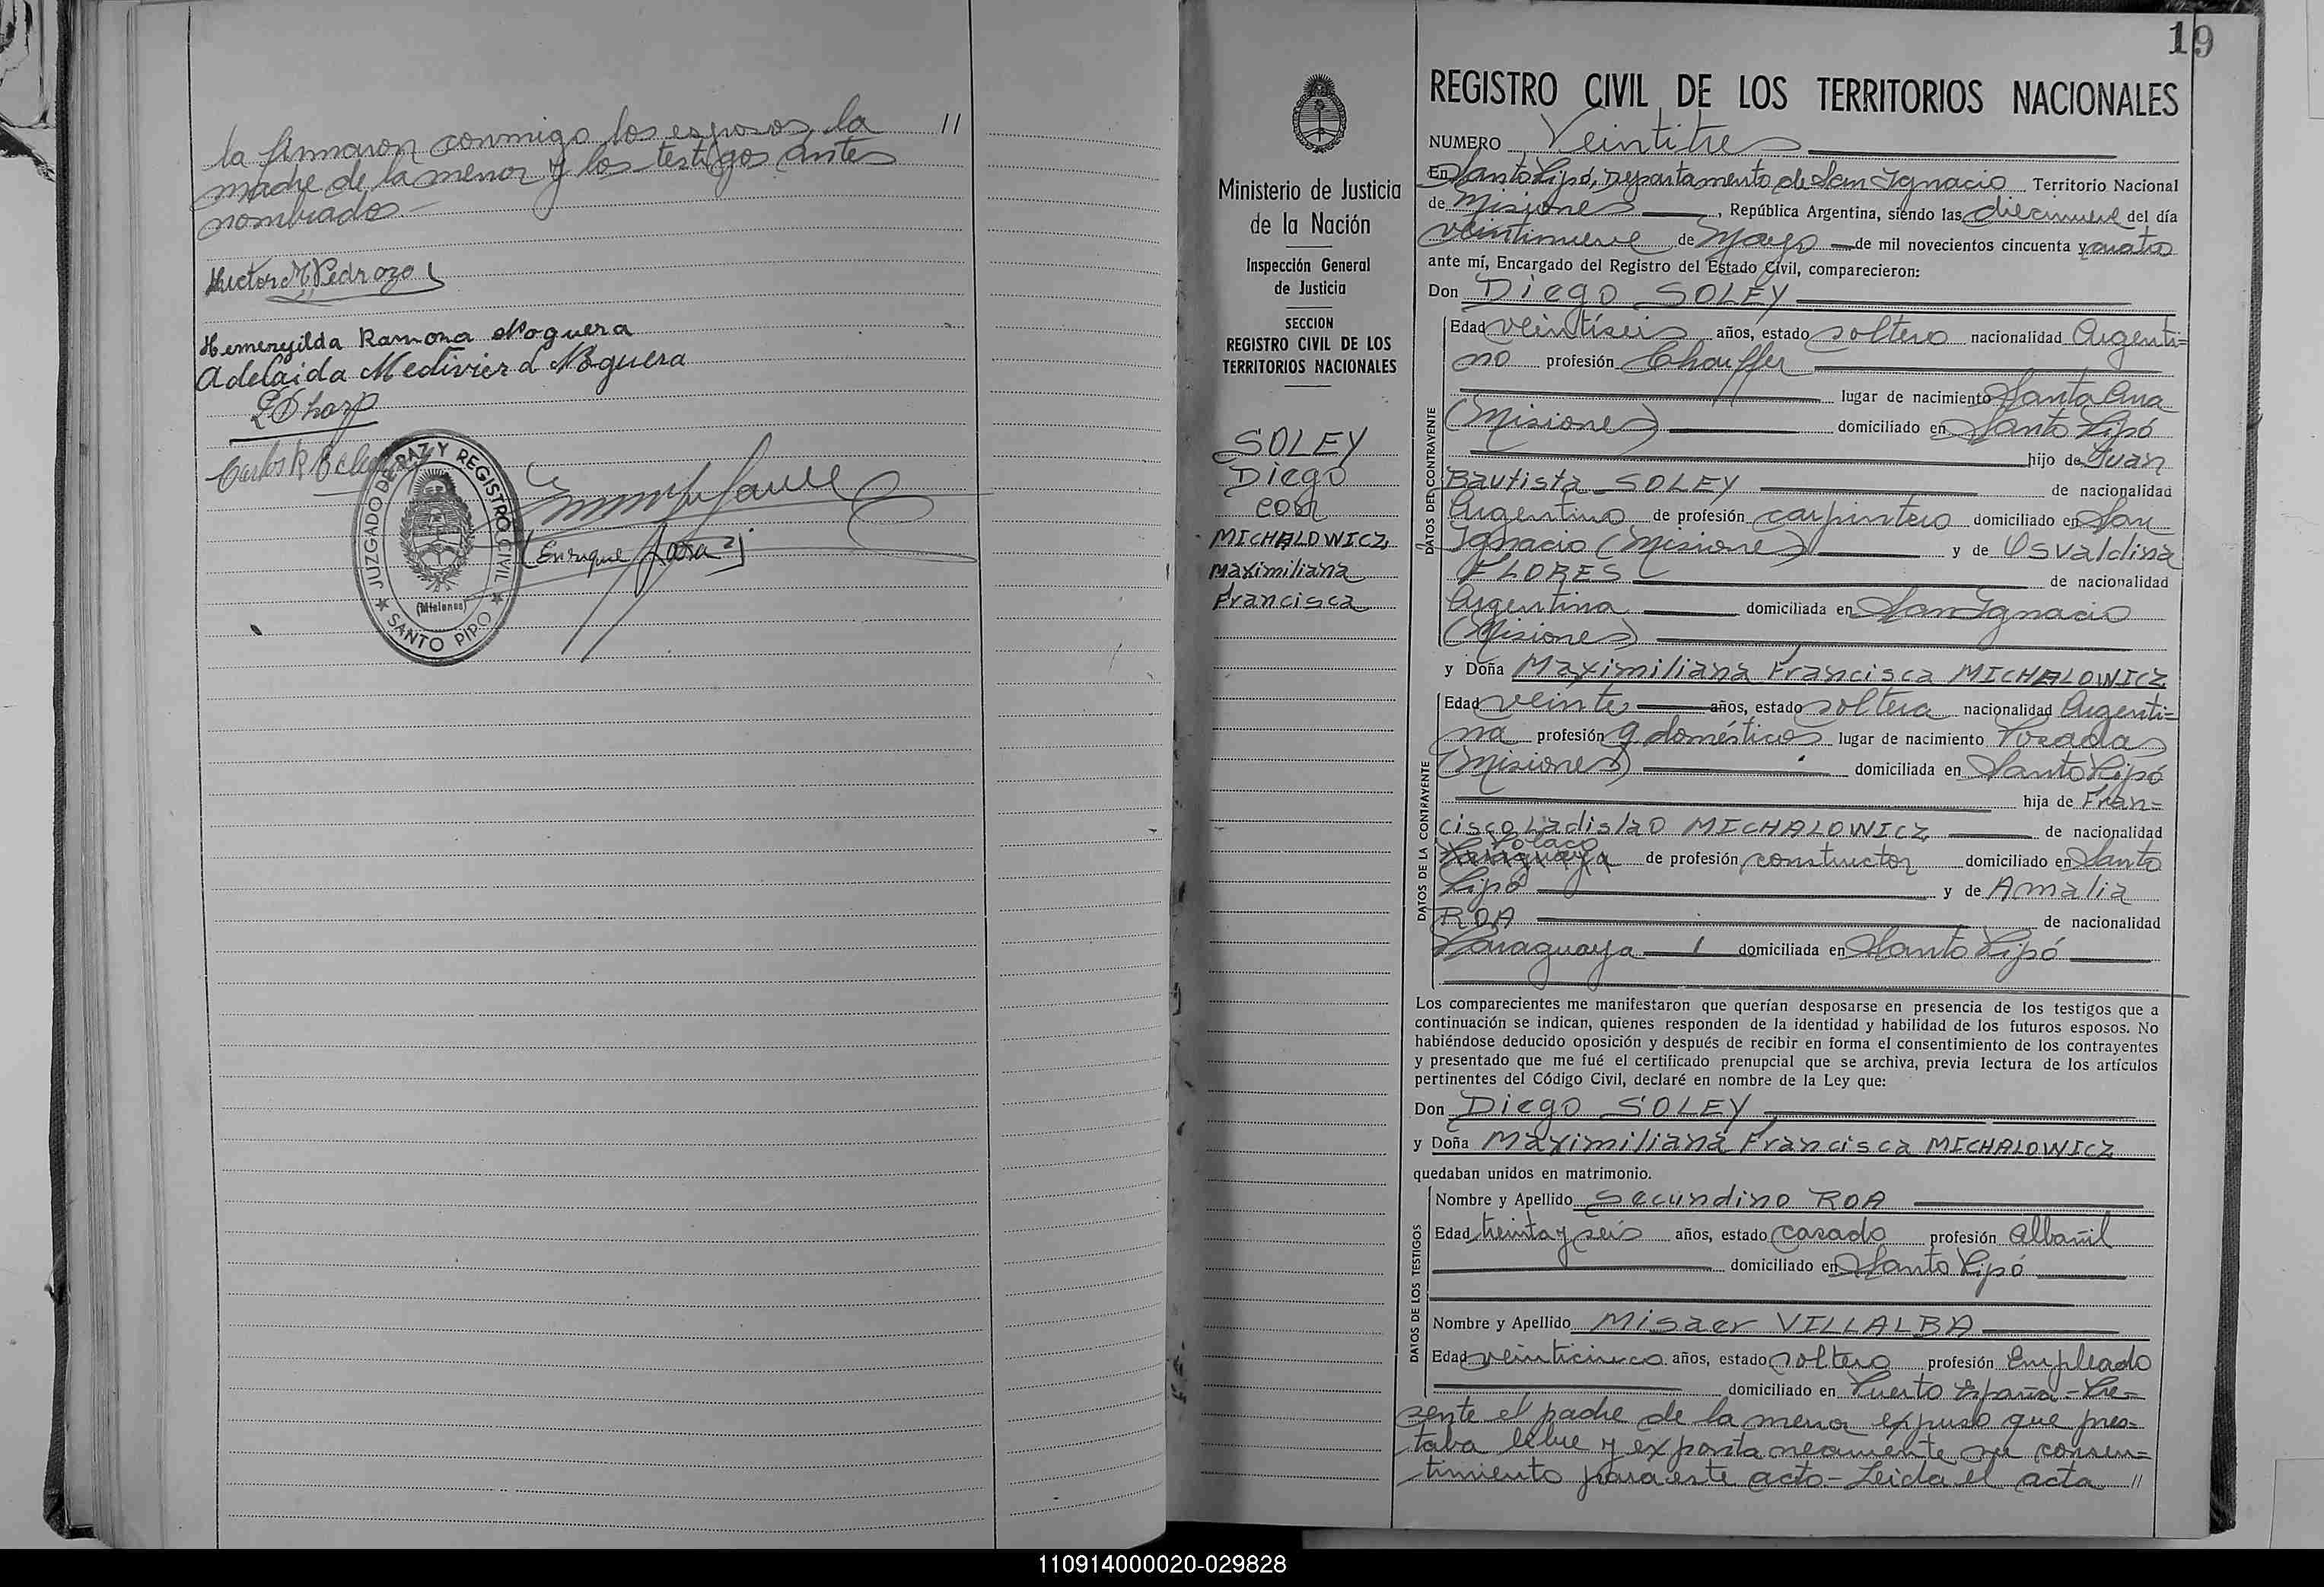 la firmaron conmigo los esposos, la //
madre de la menor y los testigos antes
nombrados-
Hector M Pedrozo
Hemenegilda Ramona Noguera
Adelaida Medivier d Noguera
Carlos R
JUZGADO DE PAZ Y REGISTRO CIVIL
(Misiones)
SANTO PIPO
(Enrique Jara)
19
Ministerio de Justicia
de la Nación
Inspección General
de Justicia
SECCION
REGISTRO CIVIL DE LOS
TERRITORIOS NACIONALES
SOLEY
Diego
con
MICHALOWICZ,
Maximiliana
Francisca
REGISTRO CIVIL DE LOS TERRITORIOS NACIONALES
NUMERO Veintitres
En Santo Pipó, Departamento de San Ignacio Territorio Nacional
de Misiones, República Argentina, siendo las diecinueve del día
veintinueve de Mayo de mil novecientos cincuenta y cuatro
ante mí, Encargado del Registro del Estado Civil, comparecieron:
Don Diego SOLEY
DATOS DEL CONTRAYENTE
Edad veintiseis años, estado soltero nacionalidad Argenti=
no profesión Chouffer
lugar de nacimiento Santa Ana
(Misiones) domiciliado en Santo Pipó
hijo de Juan
Bautista SOLEY de nacionalidad
Argentino de profesión carpintero domiciliado en San
Ignacio (Misiones) y de Osvaldina
FLORES de nacionalidad
Argentina domiciliada en San Ignacio
(Misiones)
y Doña Maximiliana Francisca MICHALOWICZ
DATOS DE LA CONTRAYENTE
Edad veinte años, estado soltera nacionalidad Argenti=
na profesión q domésticos lugar de nacimiento Posadas
(Misiones) domiciliada en Santo Pipó
hija de Fran=
cisco Ladislao MICHALOWICZ de nacionalidad
Polaco
Paraguaya de profesión constructor domiciliado en Santo
Pipó y de Amalia
ROA de nacionalidad
Paraguaya domiciliada en Santo Pipó
Los comparecientes me manifestaron que querían desposarse en presencia de los testigos que a
continuación se indican, quienes responden de la identidad y habilidad de los futuros esposos. No
habiéndose deducido oposición y después de recibir en forma el consentimiento de los contrayentes
y presentado que me fué el certificado prenupcial que se archiva, previa lectura de los artículos
pertinentes del Código Civil, declaré en nombre de la Ley que:
Don Diego SOLEY
y Doña Maximiliana Francisca MICHALOWICZ
quedaban unidos en matrimonio.
DATOS DE LOS TESTIGOS
Nombre y Apellido Secundino ROA
Edad treinta y seis años, estado casado profesión albañil
domiciliado en Santo Pipó
Nombre y Apellido Misaer VILLALBA
Edad veinticinco años, estado soltero profesión Empleado
domiciliado en Puerto España - Pre=
sente el padre de la menor expuso que pres=
taba libre y expontaneamente su consen=
timiento para este acto - Leida el acta //
110914000020-029828